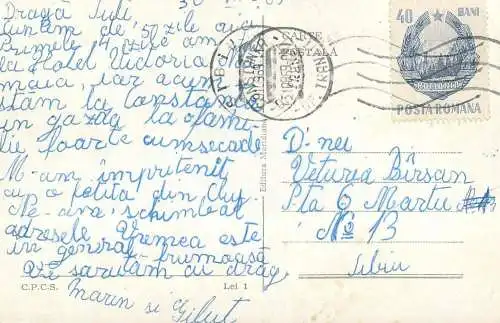 Dragă Iuli
suntem de 50 zile aici
Primele 4 zile am
la hotel Victoria Ma
maia, iar acum
stăm la Constanța
în gazdă la o fami
lie foarte cumsecade
M-am împrietenit
cu o fetiță din Cluj
Ne-am schimbat
adresele Vremea este
în general frumoasă
Vă sărutăm cu drag.
Marin si
C.P.C.S.
Lei 1
Editura Meridiane
CARTE
POSTALA
40 BANI
POSTA ROMANA
D-nei
Veturia Bîrsan
Pta 6 Martie
No 13
Sibiu